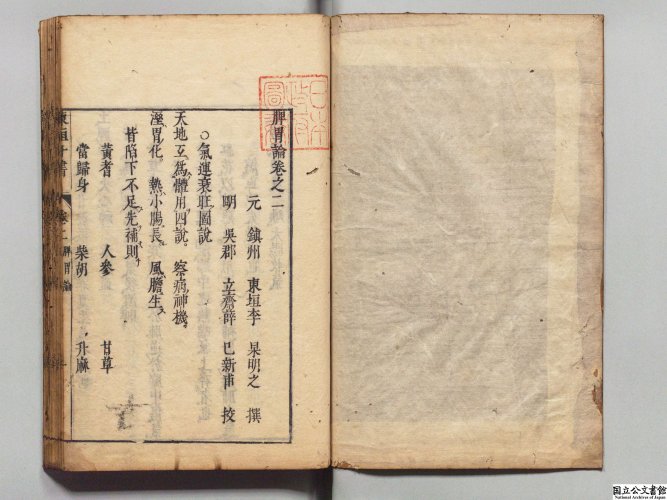 日本
政府
圖書
脾胃論卷之二
元 鎮州 東垣李 杲明之 撰
明 吳郡 立齋薛 已新甫 校
○氣運衰旺圖說
天地互爲體用四說。察病神機。
溼、胃化、熱、小腸長、風、膽生、
皆陷下不足先補則
黃耆 人參 甘草
當歸身 柴胡 升麻
東垣十書 卷二 脾胃論
国立公文書館
National Archives of Japan